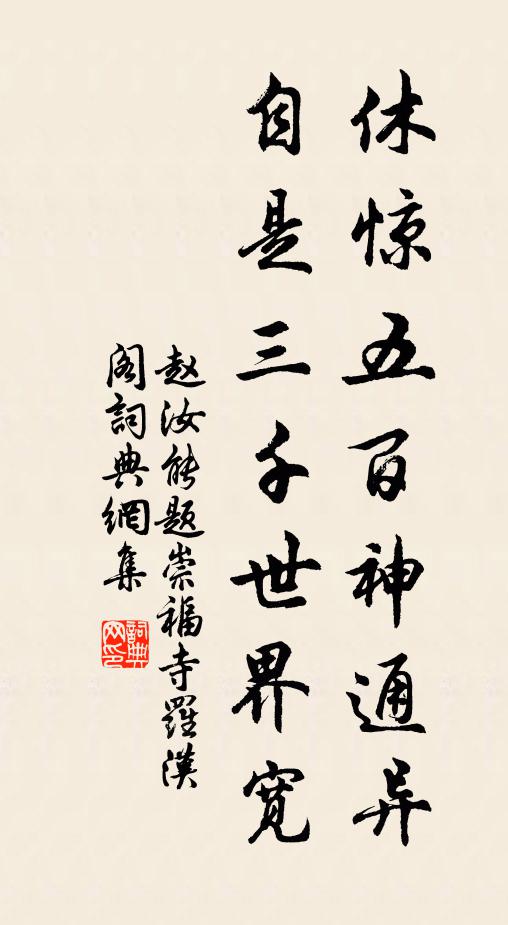 休惊五百神通异
自是三千世界宽
赵汝能题崇福寺羅漢
阁詞典網集
詞典网印